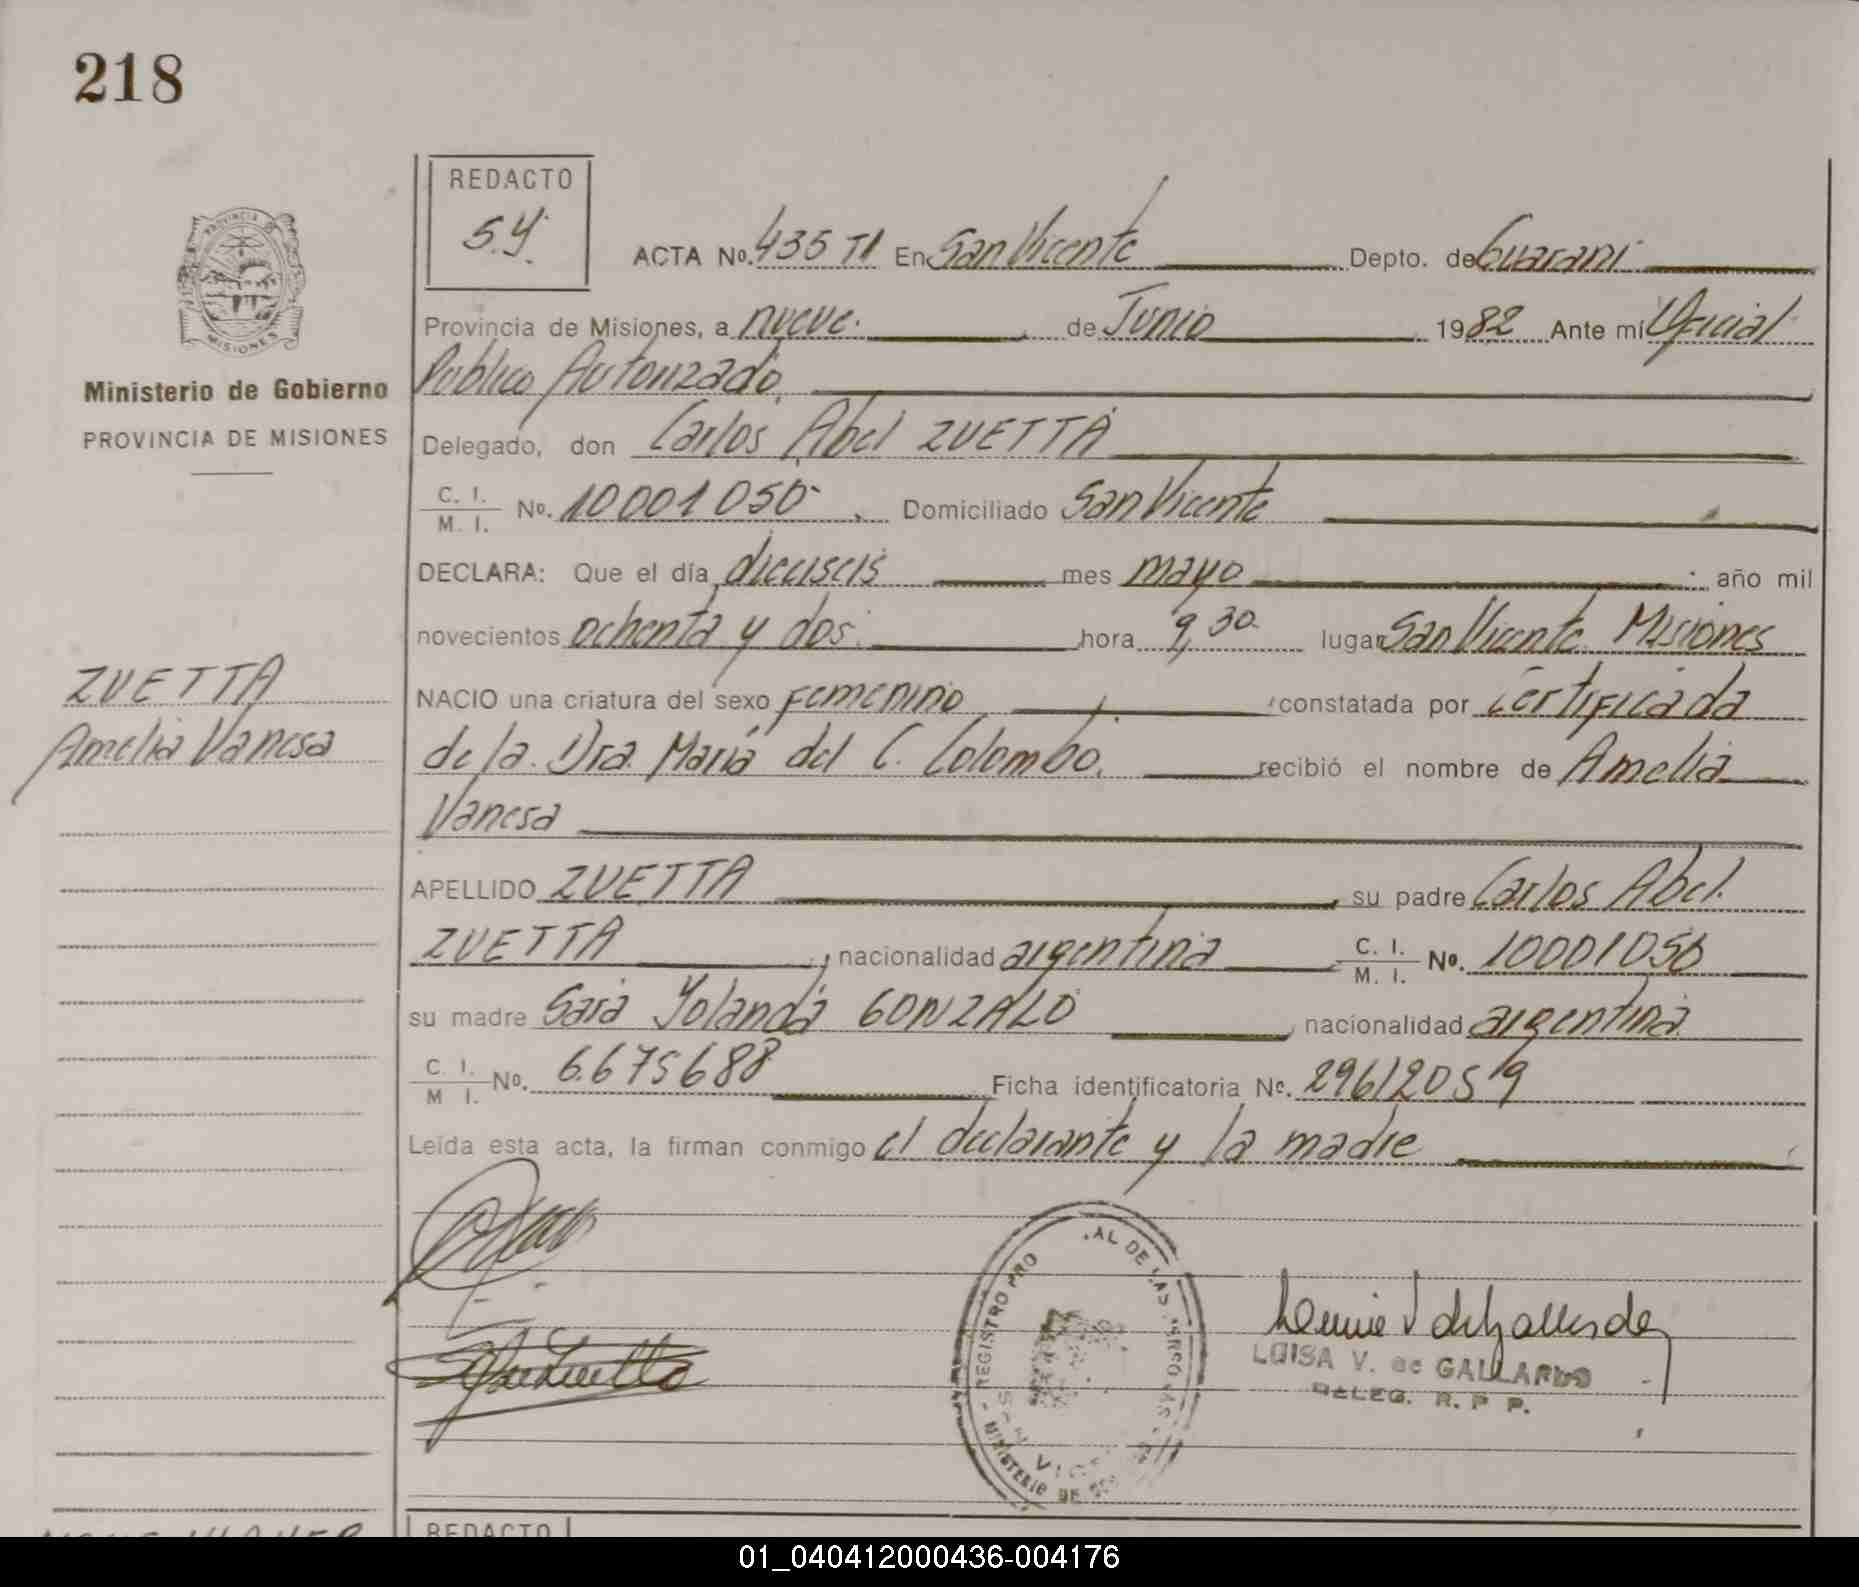 218
REDACTO
S.Y.
ACTA No. 435 TI En San Vicente Depto. de Guarani
Provincia de Misiones, a nueve. de Junio 1982 Ante mi Oficial
Publico Autorizado
Ministerio de Gobierno
PROVINCIA DE MISIONES
Delegado, don Carlos Abel ZUETTA
C. I. / M. I. No. 10001050 Domiciliado San Vicente
DECLARA: Que el día dieciseis mes mayo año mil
novecientos ochenta y dos. hora 9,30. lugar San Vicente Misiones
ZUETTA
Amelia Vanesa
NACIO una criatura del sexo femenino constatada por certificada
de la Dra. María del C. Colombo, recibió el nombre de Amelia
Vanesa
APELLIDO ZUETTA su padre Carlos Abel
ZUETTA, nacionalidad argentina C. I. / M. I. No. 10001050
su madre Sara Yolanda GONZALO, nacionalidad argentina
C. I. / M I. No. 6.675688 Ficha identificatoria No. 29612059
Leída esta acta, la firman conmigo el declarante y la madre
REGISTRO PRO AL DE LAS PERSONAS
MINISTERIO DE
LUISA V. de GALLARDO
DELEG. R. P P.
REDACTO
01_040412000436-004176